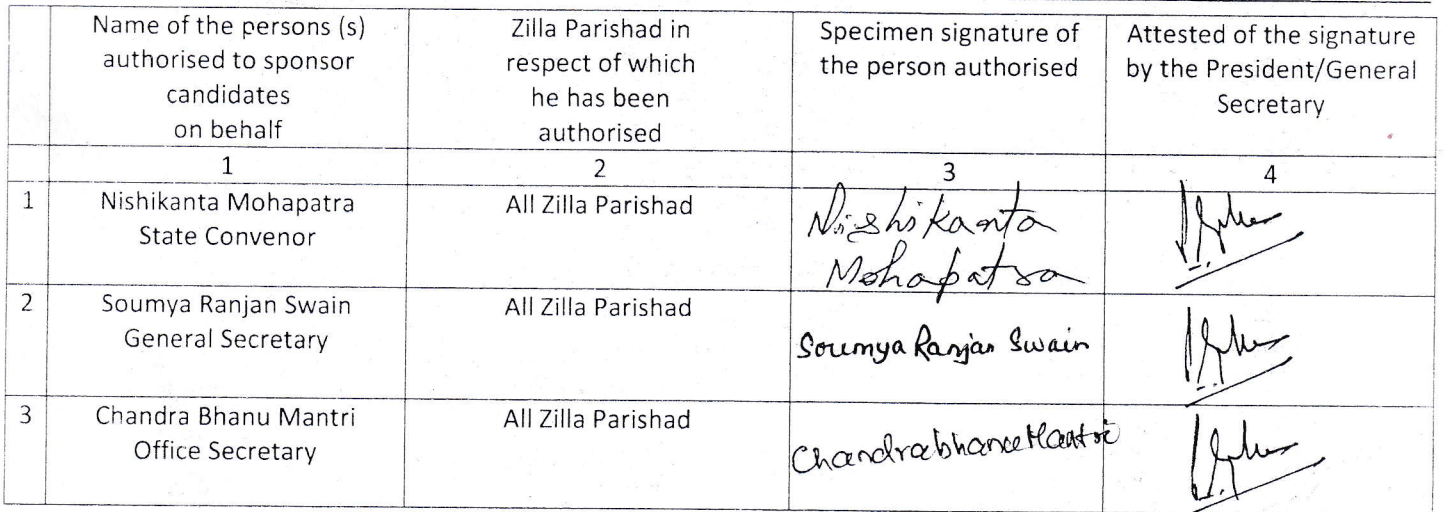 Name of the persons (s)
authorised to sponsor
candidates
on behalf
Zilla Parishad in
respect of which
he has been
authorised
Specimen signature of
the person authorised
Attested of the signature
by the President/General
Secretary
1
2
3
4
1
Nishikanta Mohapatra
State Convenor
All Zilla Parishad
Nishikanta
Mohapatra
2
Soumya Ranjan Swain
General Secretary
All Zilla Parishad
Soumya Ranjan Swain
3
Chandra Bhanu Mantri
Office Secretary
All Zilla Parishad
Chandrabhanu Mantri